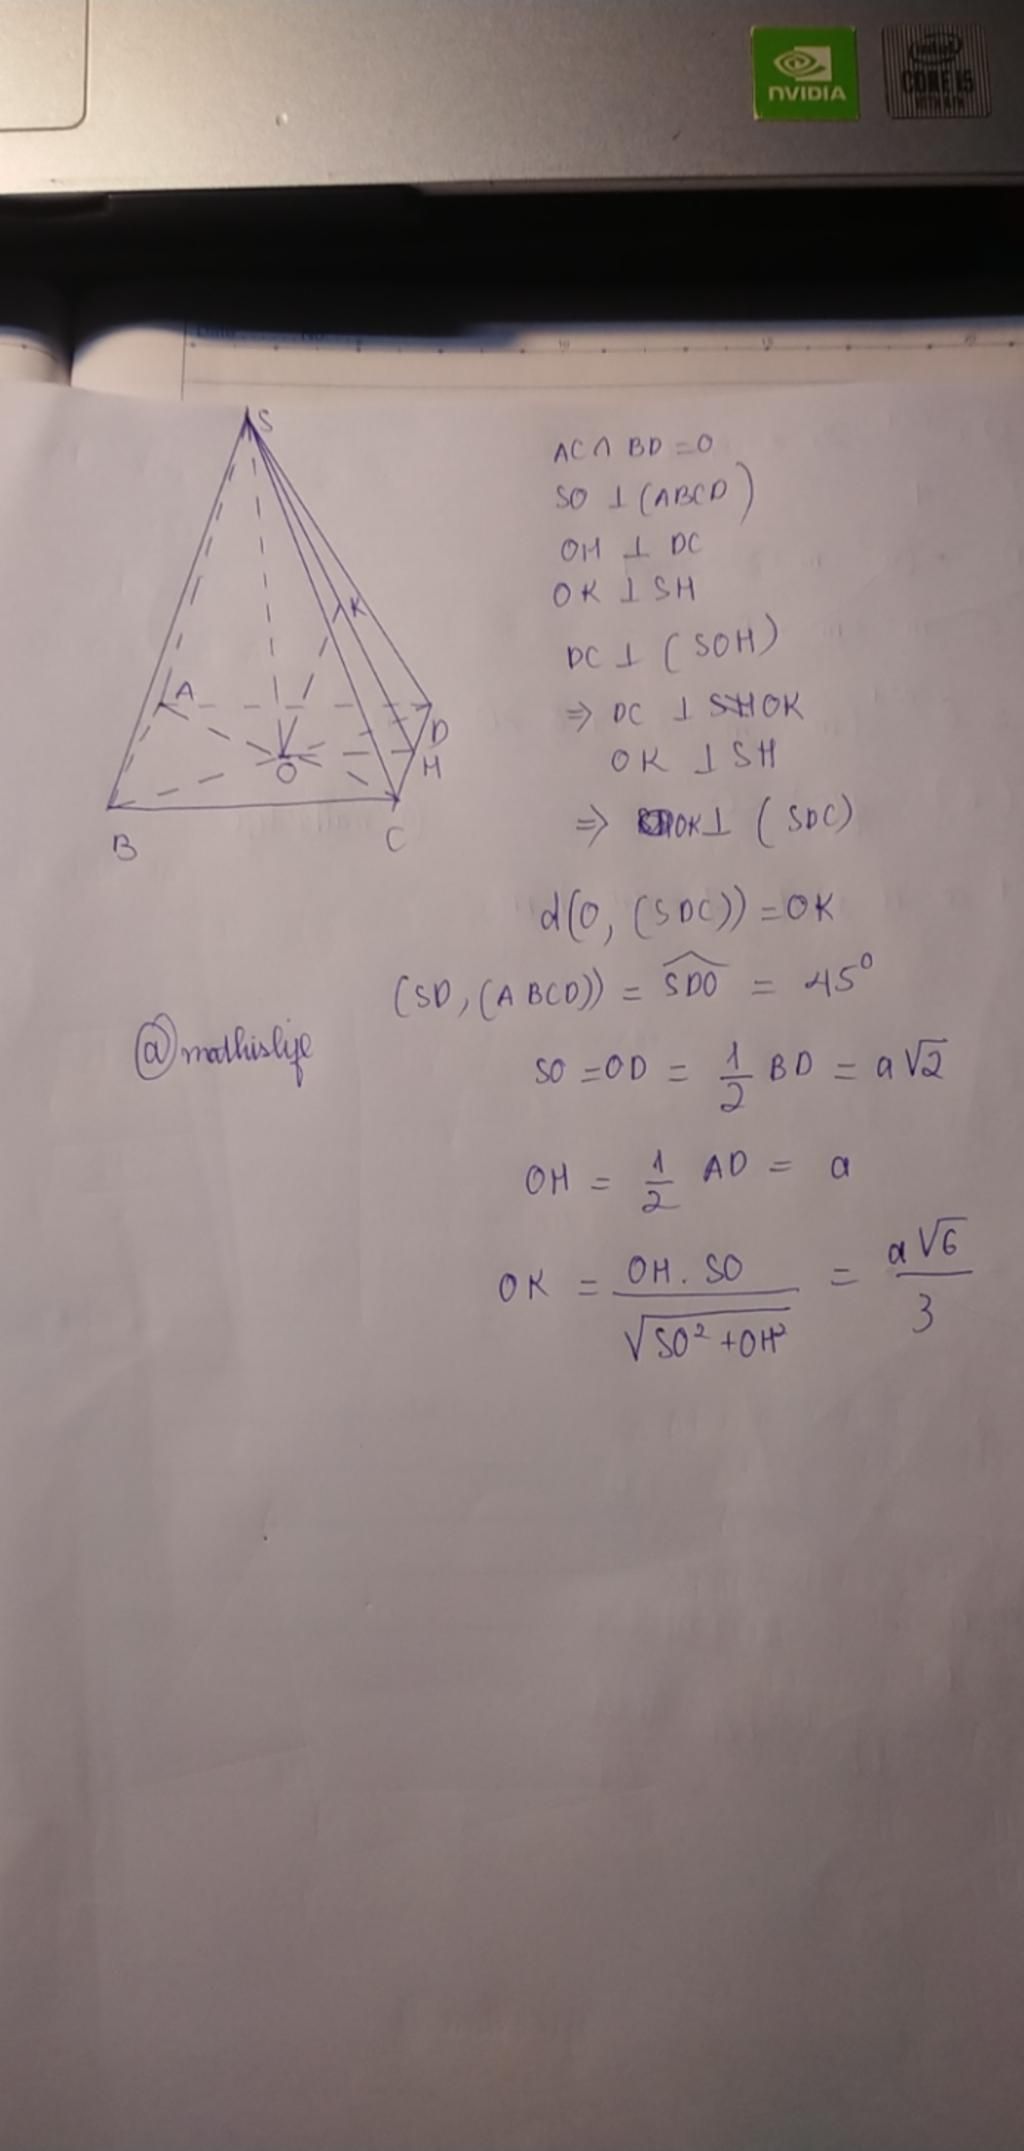 NVIDIA
intel
CORE i5
S
K
A
D
H
O
B
C
AC ∩ BD = O
SO ⊥ (ABCD)
OH ⊥ DC
OK ⊥ SH
DC ⊥ (SOH)
⇒ DC ⊥ OK
OK ⊥ SH
⇒ OK ⊥ (SDC)
d(O, (SDC)) = OK
(SD, (ABCD)) = \widehat{SDO} = 45°
@mathislife
SO = OD = 1/2 BD = a√2
OH = 1/2 AD = a
OK = OH . SO / √(SO² + OH²) = a√6 / 3